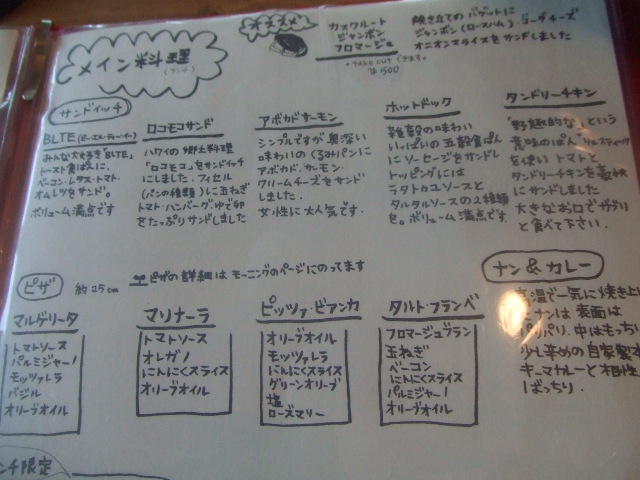 メイン料理
(ランチ)
オススメ
カスクルート
ジャンボン
フロマージュ
*TAKE OUT できます。
¥500
焼き立てのバゲットに
ジャンボン(ロースハム)、ゴーダチーズ
オニオンスライスをサンドしました
サンドイッチ
BLTE(ビーエルティーイー)
みんな大好き"BLTE"
トースト食ぱんに、
ベーコン・レタス・トマト・
オムレツをサンド。
ボリューム満点です
ロコモコサンド
ハワイの郷土料理
「ロコモコ」をサンドイッチ
にしました。フィセル
(パンの種類)に玉ねぎ
トマト・ハンバーグ・ゆで卵
をたっぷりサンドしました
アボカドサーモン
シンプルですが奥深い
味わいのくるみパンに
アボカド、サーモン
クリームチーズをサンド
しました。
女性に大人気です。
ホットドック
雑穀の味わい
いっぱいの五穀食ぱん
にソーセージをサンドし
トッピングには
ラタトゥユソースと
タルタルソースの2種類
を。ボリューム満点です
タンドリーチキン
"野趣的な"という
意味のぱん、リュスティック
を使い トマトと
タンドリーチキンを豪快
にサンドしました
大きなお口でガブリ
と食べて下さい。
ピザ 約25cm
ピザの詳細はモーニングのページにのってます
マルゲリータ
トマトソース
パルミジャーノ
モッツァレラ
バジル
オリーブオイル
マリナーラ
トマトソース
オレガノ
にんにくスライス
オリーブオイル
ピッツァ・ビアンカ
オリーブオイル
モッツァレラ
にんにくスライス
グリーンオリーブ
塩
ローズマリー
タルト・フランベ
フロマージュブラン
玉ねぎ
ベーコン
にんにくスライス
パルミジャーノ
オリーブオイル
ナン&カレー
高温で一気に焼き上げ
ナンは 表面は
パリパリ、中はもっち
少し辛めの自家製
キーマカレーと相性
ばっちり。
ンチ限定